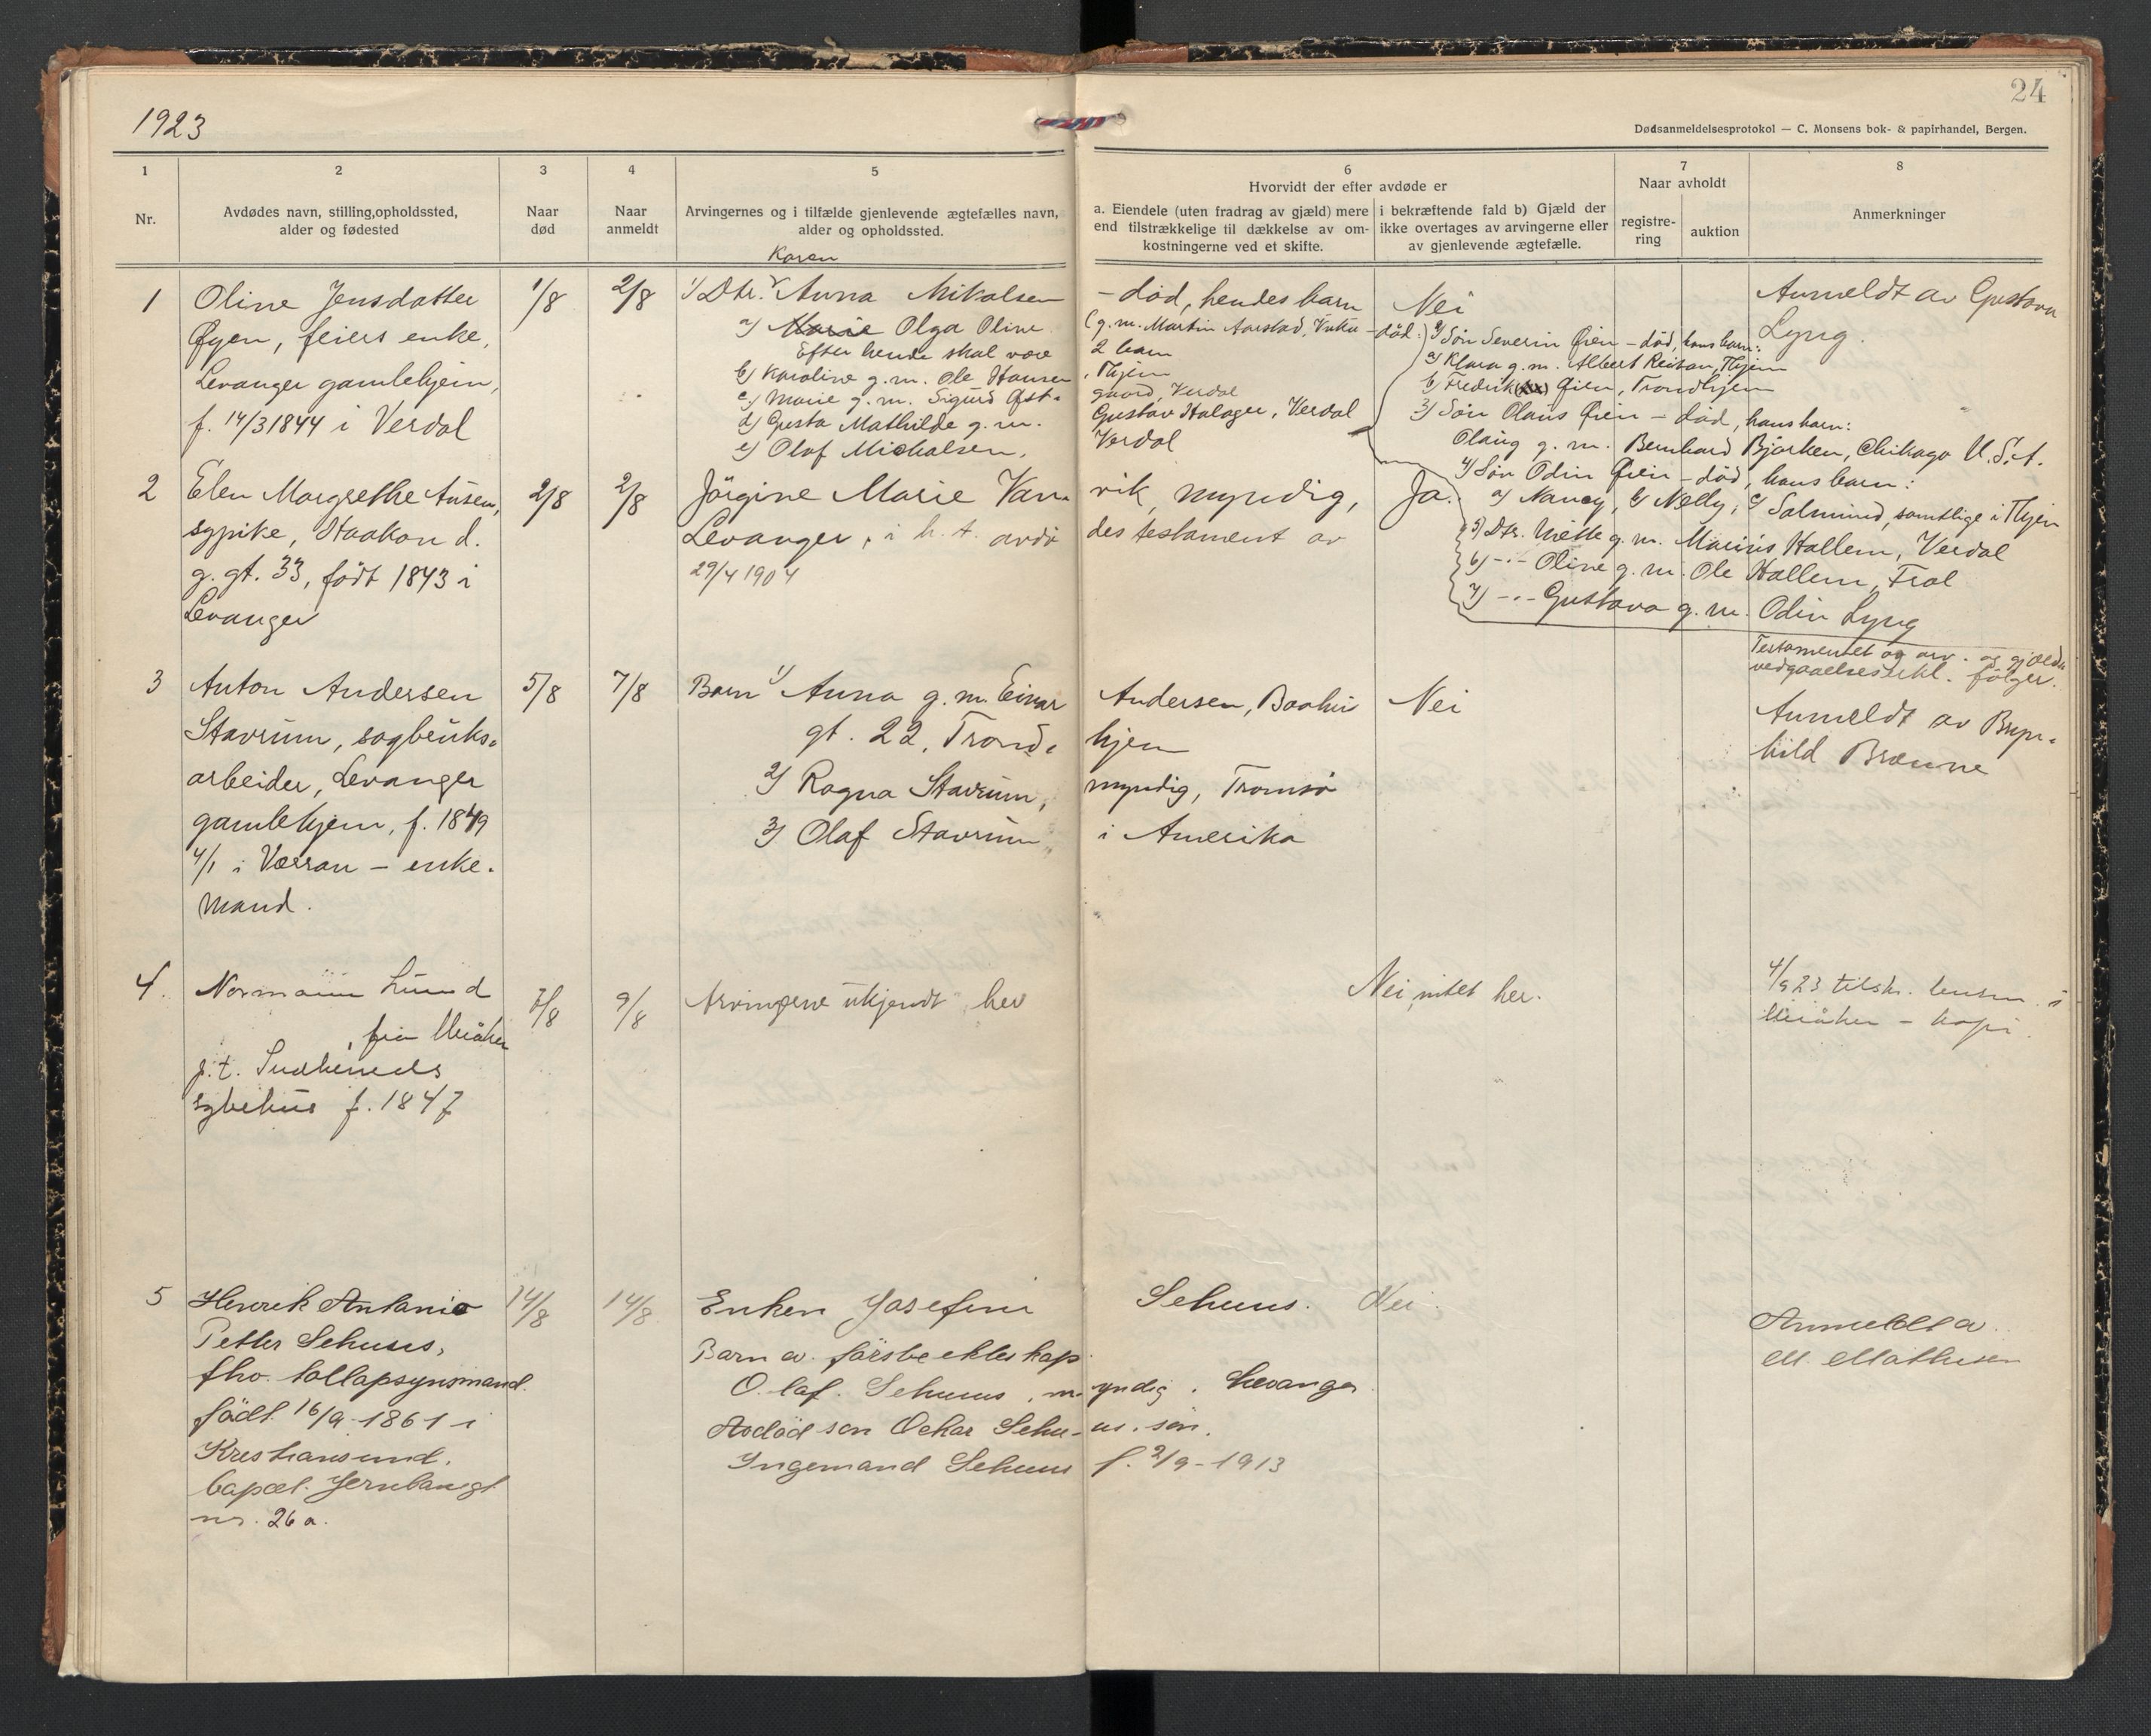 24
1923
Dødsanmeldelsesprotokol — C. Monsens bok- & papirhandel, Bergen.
1 2 3 4 5 6 7 8
Nr.
Avdødes navn, stilling, opholdssted,
alder og fødested
Naar
død
Naar
anmeldt
Arvingernes og i tilfælde gjenlevende ægtefælles navn,
alder og opholdssted.
Hvorvidt der efter avdøde er
a. Eiendele (uten fradrag av gjæld) mere
end tilstrækkelige til dækkelse av om-
kostningerne ved et skifte.
i bekræftende fald b) Gjæld der
ikke overtages av arvingerne eller
av gjenlevende ægtefælle.
Naar avholdt
registre-
ring
auktion
Anmerkninger
1
Oline Jensdatter
Øyen, feiers enke,
Levanger gamlehjem,
f. 14/3 1844 i Verdal
1/8
2/8
Karen
1/ Dtr. Anna Mikalsen - død, hendes barn
a/ Marie Olga Oline (g.m. Martin Aarstad, Vuku - død.)
Efter hende skal være 2 barn
b/ Karoline g.m. Ole Hansen, Thjem
c/ Marie g.m. Sigurd Øst-gaard, Verdal
d/ Gusta Mathilde g.m. Gustav Halager, Verdal
e/ Olaf Michalsen, Verdal
Nei
2/ Søn Severin Øien - død, hans barn:
a/ Klara g.m. Albert Reitan, Thjem
b/ Fredrik Øien, Trondhjem
3/ Søn Olaus Øien - død, hans barn:
Olaug g.m. Bernhard Bjørken, Chikago U.S.A.
4/ Søn Odin Øien - død, hans barn:
a/ Nancy, b/ Nelly, c/ Salmund, samtlige i Thjem
5/ Dtr. Mette g.m. Marius Hallem, Verdal
6/ -"- Oline g.m. Ole Hallem, Frol
7/ -"- Gustava g.m. Odin Lyng
Anmeldt av Gustava
Lyng.
2
Elen Margrethe Ausen,
sypike, Haakon d.
g. gt. 33, født 1843 i
Levanger
2/8
2/8
Jörgine Marie Van-vik, myndig,
Levanger, i h. t. avdø-des testament av
29/4 1904
Ja.
Testamentet og arv- og gjælds
vedgaaelseserkl. følger.
3
Anton Andersen
Stavrum, sagbruks-
arbeider, Levanger
gamlehjem, f. 1849
4/1 i Værran - enke-
mand.
5/8
7/8
Barn 1/ Anna g.m. Einar Andersen, Baahus
gt. 22, Trond-hjem
2/ Ragna Stavrum, myndig, Tromsø
3/ Olaf Stavrum i Amerika
Nei
Anmeldt av Bryn-
hild Brænne
4.
Normann Lund
fra Meråker
p.t. Innherreds
sykehus f. 1847
7/8
9/8
Arvingerne ukjendt her
Nei, intet her.
4/9 23 tilskr. lensm. i
Meråker - kopi.
5
Henrik Antonio
Petter Schuus,
fhv. tollopsynsmand.
født 16/9-1861 i
Kristiansund.
bopæl. Jernbangt
nr. 26a.
14/8
14/8
Enken Josefine Schuus.
Barn av første ekteskap
Olaf. Schuus, myndig. Levanger
Avdød søn Oskar Schu-us. søn.
Ingemand Schuus f. 2/9-1913
Nei.
Anmeldt a.
M. Mathisen